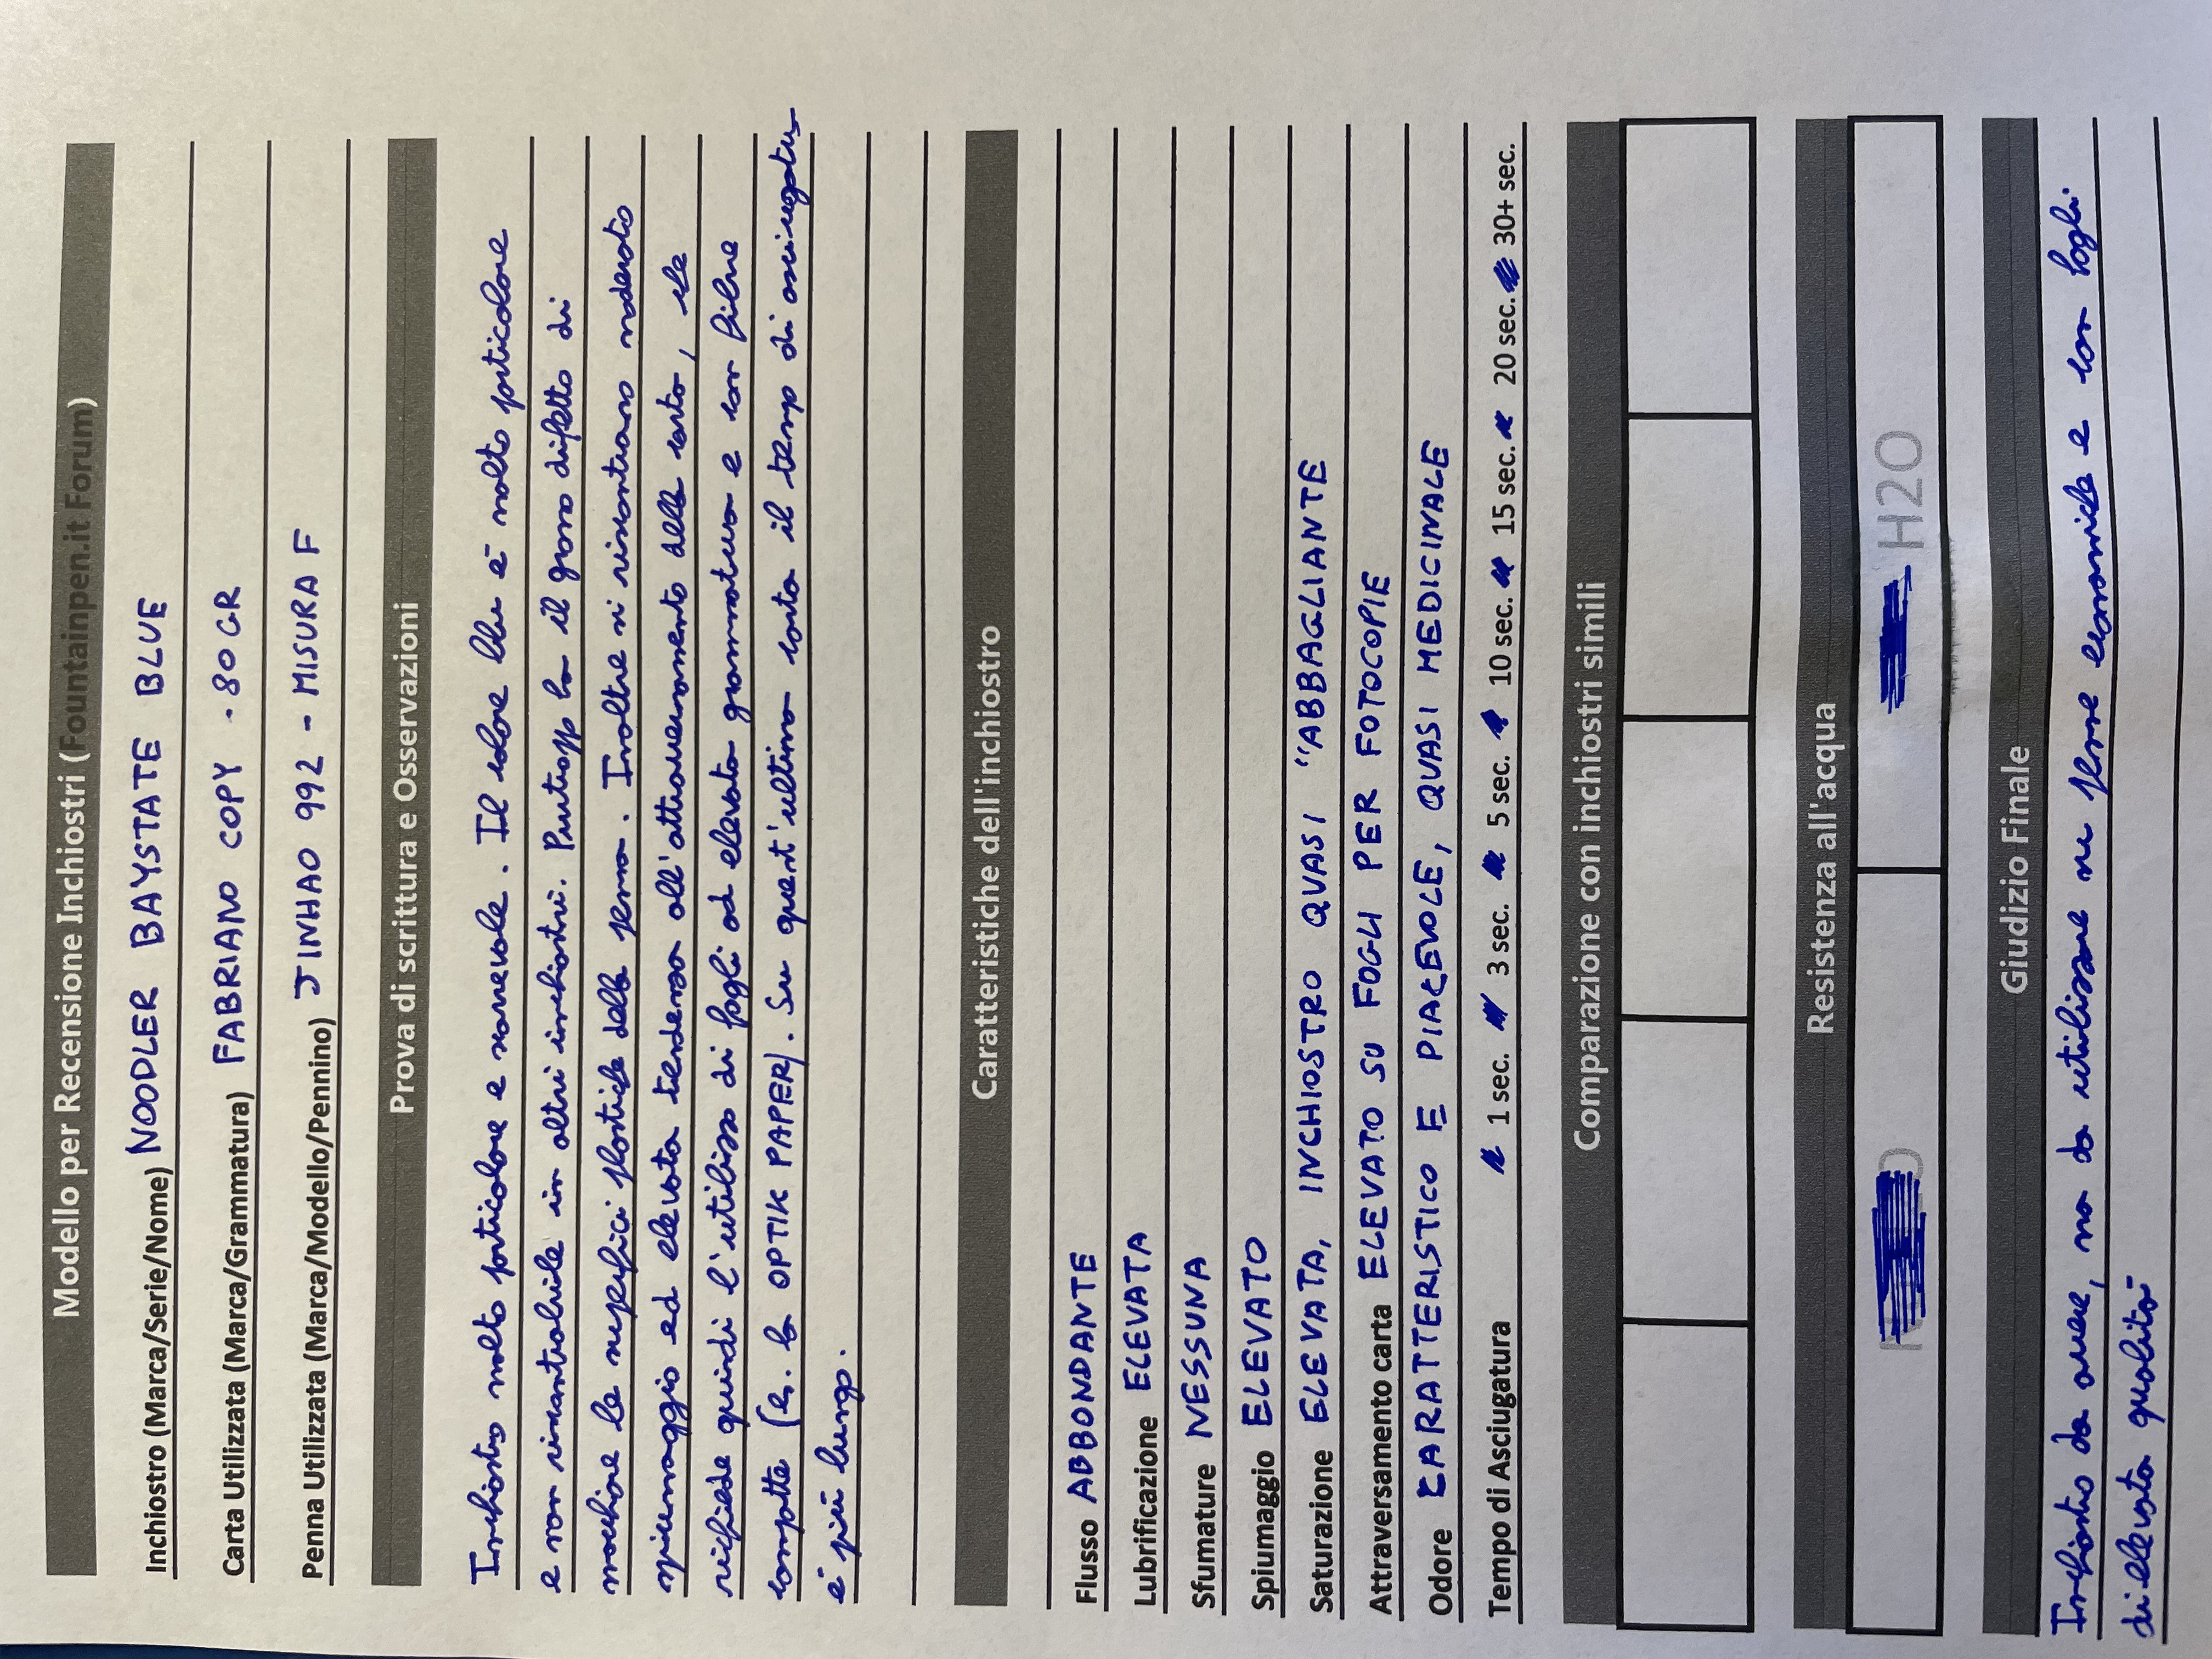 Modello per Recensione Inchiostri (Fountainpen.it Forum)
Inchiostro (Marca/Serie/Nome) NOODLER BAYSTATE BLUE
Carta Utilizzata (Marca/Grammatura) FABRIANO COPY - 80 GR
Penna Utilizzata (Marca/Modello/Pennino) JINHAO 992 - MISURA F
Prova di scrittura e Osservazioni
Inchiostro molto particolare e scorrevole. Il colore blu è molto particolare
e non riscontrabile in altri inchiostri. Purtroppo ha il grosso difetto di
macchiare le superfici plastiche della penna. Inoltre si riscontrano moderato
spiumaggio ed elevata tendenza all'attraversamento della carta, che
richiede quindi l'utilizzo di fogli ad elevata grammatura e con fibre
compatte (es. la OPTIK PAPER). Su quest'ultima carta il tempo di asciugatura
è più lungo.
Caratteristiche dell'inchiostro
Flusso ABBONDANTE
Lubrificazione ELEVATA
Sfumature NESSUNA
Spiumaggio ELEVATO
Saturazione ELEVATA, INCHIOSTRO QUASI "ABBAGLIANTE
Attraversamento carta ELEVATO SU FOGLI PER FOTOCOPIE
Odore CARATTERISTICO E PIACEVOLE, QUASI MEDICINALE
Tempo di Asciugatura 1 sec. 3 sec. 5 sec. 10 sec. 15 sec. 20 sec. 30+ sec.
Comparazione con inchiostri simili
Resistenza all'acqua
H2O
Giudizio Finale
Inchiostro da avere, ma da utilizzare su penne economiche e con fogli
di elevata qualità